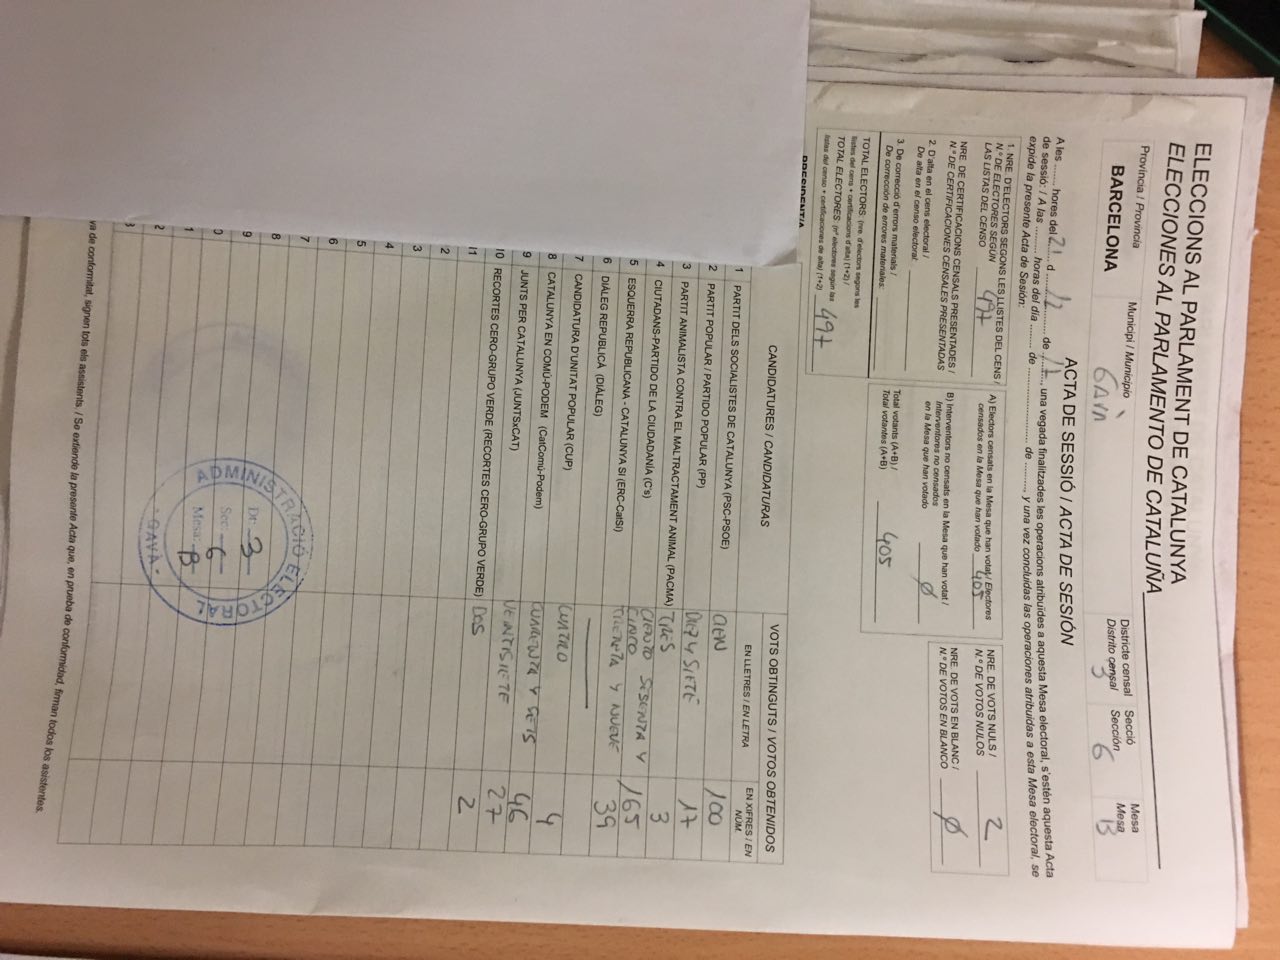 ELECCIONS AL PARLAMENT DE CATALUNYA
ELECCIONES AL PARLAMENTO DE CATALUÑA
Província / Provincia
BARCELONA
Municipi / Municipio
GAVÀ
Districte censal
Distrito censal
3
Secció
Sección
6
Mesa
Mesa
B
ACTA DE SESSIÓ / ACTA DE SESIÓN
A les ........ hores del 21 d 12 de 17, una vegada finalitzades les operacions atribuïdes a aquesta Mesa electoral, s'estén aquesta Acta
de sessió: / A las ........ horas del día ....... de ........................ de ........, y una vez concluidas las operaciones atribuidas a esta Mesa electoral, se
expide la presente Acta de Sesión:
1. NRE. D'ELECTORS SEGONS LES LLISTES DEL CENS /
N.º DE ELECTORES SEGÚN
LAS LISTAS DEL CENSO 497
NRE. DE CERTIFICACIONS CENSALS PRESENTADES /
N.º DE CERTIFICACIONES CENSALES PRESENTADAS
2. D'alta en el cens electoral /
De alta en el censo electoral:
3. De correcció d'errors materials /
De corrección de errores materiales:
TOTAL ELECTORS: (nre. d'electors segons les
llistes del cens + certificacions d'alta) (1+2) /
TOTAL ELECTORES: (nº electores según las
listas del censo + certificaciones de alta) (1+2) 497
A) Electors censats en la Mesa que han votat / Electores
censados en la Mesa que han votado 405
B) Interventors no censats en la Mesa que han votat /
Interventores no censados
en la Mesa que han votado Ø
Total votants (A+B) /
Total votantes (A+B) 405
NRE. DE VOTS NULS /
N.º DE VOTOS NULOS 2
NRE. DE VOTS EN BLANC /
N.º DE VOTOS EN BLANCO Ø
PRESIDENT/A
CANDIDATURES / CANDIDATURAS
VOTS OBTINGUTS / VOTOS OBTENIDOS
EN LLETRES / EN LETRA
EN XIFRES / EN
NÚM.
1 PARTIT DELS SOCIALISTES DE CATALUNYA (PSC-PSOE) CIEN 100
2 PARTIT POPULAR / PARTIDO POPULAR (PP) DIEZ Y SIETE 17
3 PARTIT ANIMALISTA CONTRA EL MALTRACTAMENT ANIMAL (PACMA) TRES 3
4 CIUTADANS-PARTIDO DE LA CIUDADANÍA (C's) CIENTO SESENTA Y
CINCO 165
5 ESQUERRA REPUBLICANA - CATALUNYA SÍ (ERC-CatSí) TREINTA Y NUEVE 39
6 DIÀLEG REPUBLICÀ (DIÀLEG)
7 CANDIDATURA D'UNITAT POPULAR (CUP) CUATRO 4
8 CATALUNYA EN COMÚ-PODEM (CatComú-Podem) CUARENTA Y SEIS 46
9 JUNTS PER CATALUNYA (JUNTSxCAT) VEINTISIETE 27
10 RECORTES CERO-GRUPO VERDE (RECORTES CERO-GRUPO VERDE) DOS 2
11
2
3
4
5
6
7
8
9
0
1
2
3
ADMINISTRACIÓ ELECTORAL
Dt: 3
Sec: 6
Mesa: B
- GAVÀ -
va de conformitat, signen tots els assistents. / Se extiende la presente Acta que, en prueba de conformidad, firman todos los asistentes.